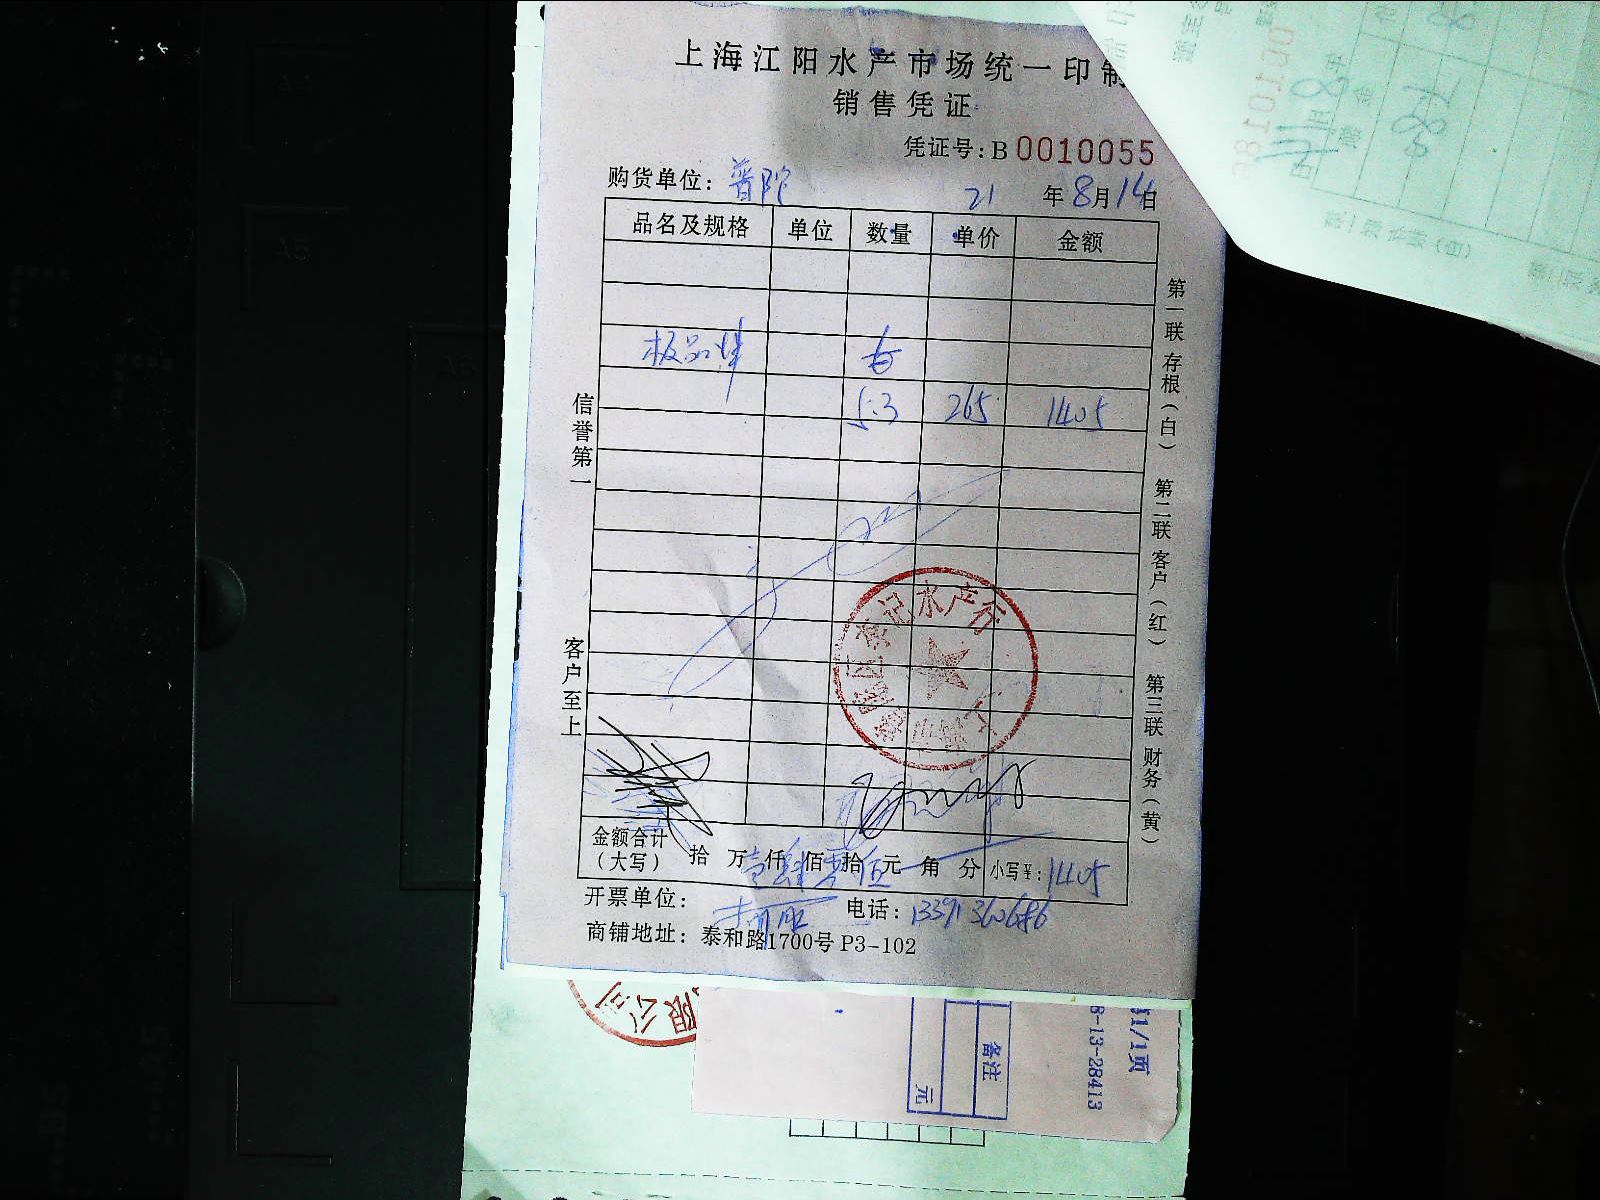 上海江阳水产市场统一印制
销售凭证
凭证号:B 0010055
购货单位: 普陀 21 年 8 月 14 日
品名及规格 单位 数量 单价 金额
极品
5.3 265 1405
信誉第一
客户至上
第一联 存根(白) 第二联 客户(红) 第三联 财务(黄)
记水产行
金额合计(大写) 拾 万 壹 仟 肆 佰 零 拾 伍 元 角 分 小写¥: 1405
开票单位: 电话: 13391360686
商铺地址: 泰和路1700号 P3-102
限公司
备注
元
第1/1页
8-13-28413
0010188